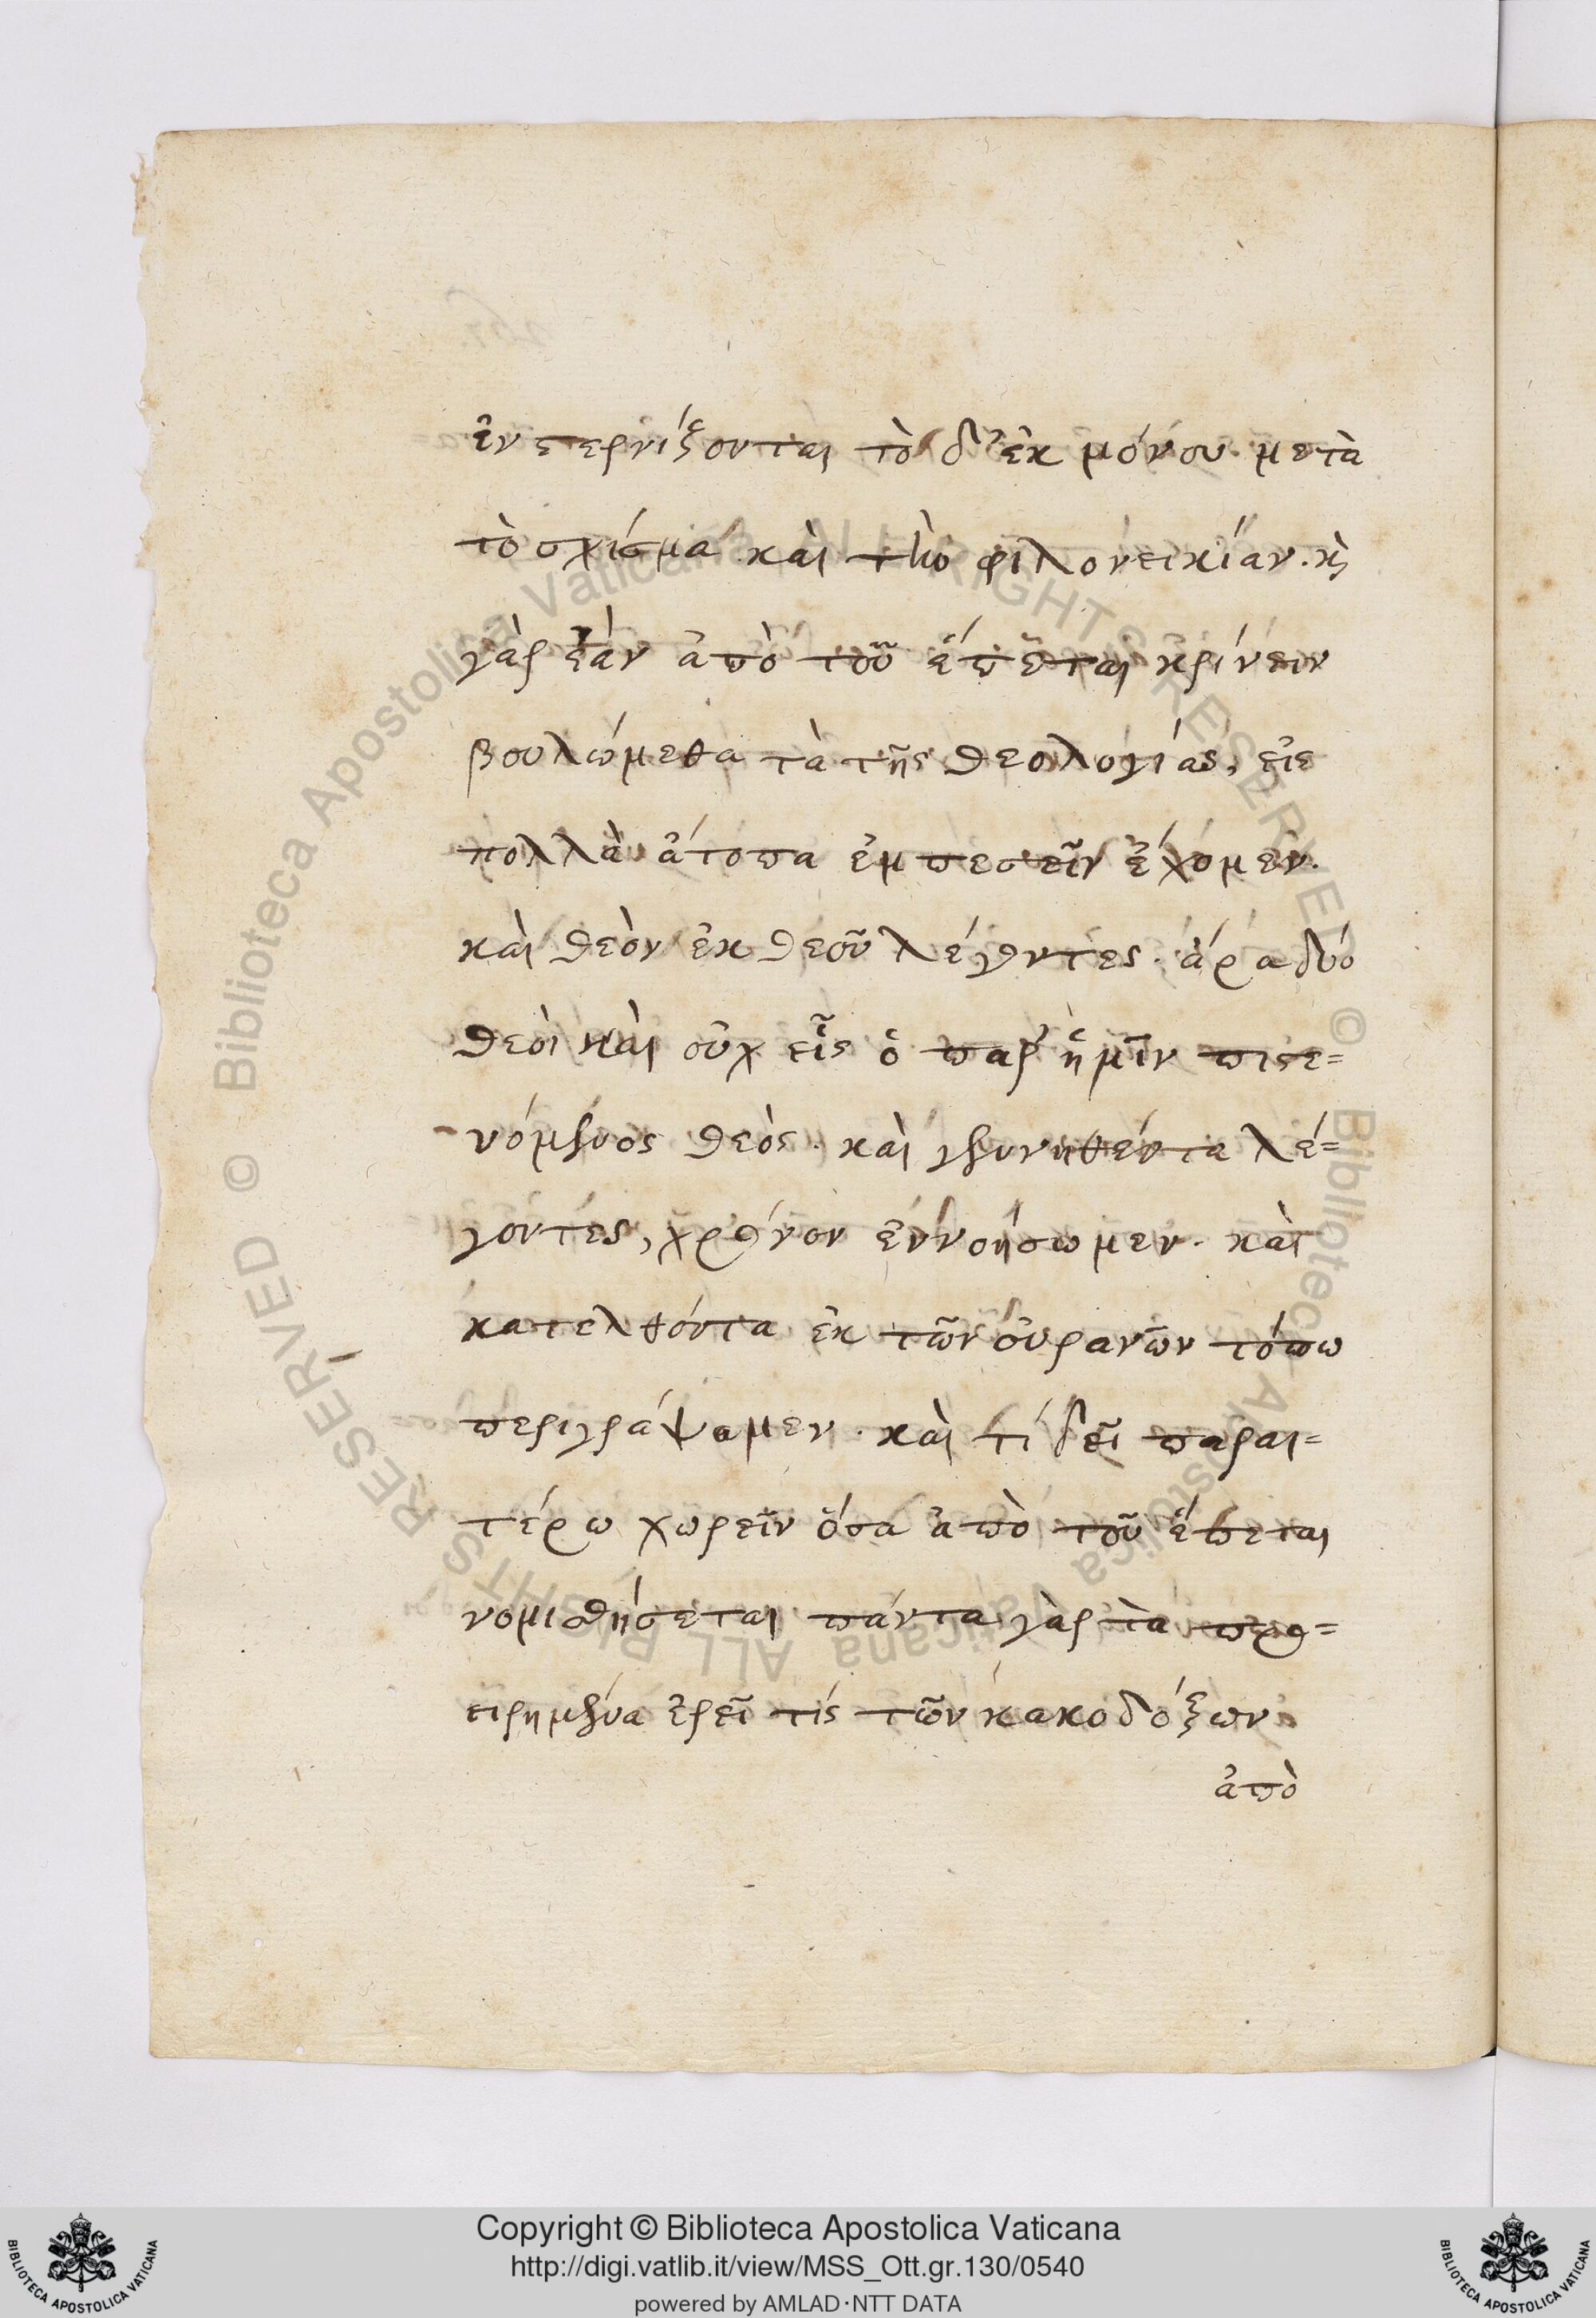 ἐνστερνίζονται τὸ δ' ἐκ μόνου μετὰ
τὸ σχίσμα καὶ τὴν φιλονεικίαν. κ̀
γὰρ ἐὰν ἀπὸ τοῦ ἕπεται κρίνειν
βουλώμεθα τὰ τῆς θεολογίας, εἰς
πολλὰ ἄτοπα ἐμπεσεῖν ἔχομεν.
καὶ θεὸν ἐκ θεοῦ λέγοντες. ἄρα δύο
θεοὶ καὶ οὐχ εἷς ὁ παρ' ἡμῖν πιστε=
υόμενος θεός. καὶ γεννηθέντα λέ=
γοντες, χρόνον ἐννοήσωμεν. καὶ
κατελθόντα ἐκ τῶν οὐρανῶν τόπω
περιγράψομεν. καὶ τί δεῖ παραι=
τέρω χωρεῖν ὅσα ἀπὸ τοῦ ἕπεται
νομισθήσεται πάντα γὰρ τὰ προ=
ειρημένα ἐρεῖ τίς τῶν κακοδόξων
ἀπὸ
Copyright © Biblioteca Apostolica Vaticana
http://digi.vatlib.it/view/MSS_Ott.gr.130/0540
powered by AMLAD·NTT DATA
BIBLIOTECA APOSTOLICA VATICANA
BIBLIOTECA APOSTOLICA VATICANA
© Biblioteca Apostolica Vaticana ALL RIGHTS RESERVED
© Biblioteca Apostolica Vaticana ALL RIGHTS RESERVED